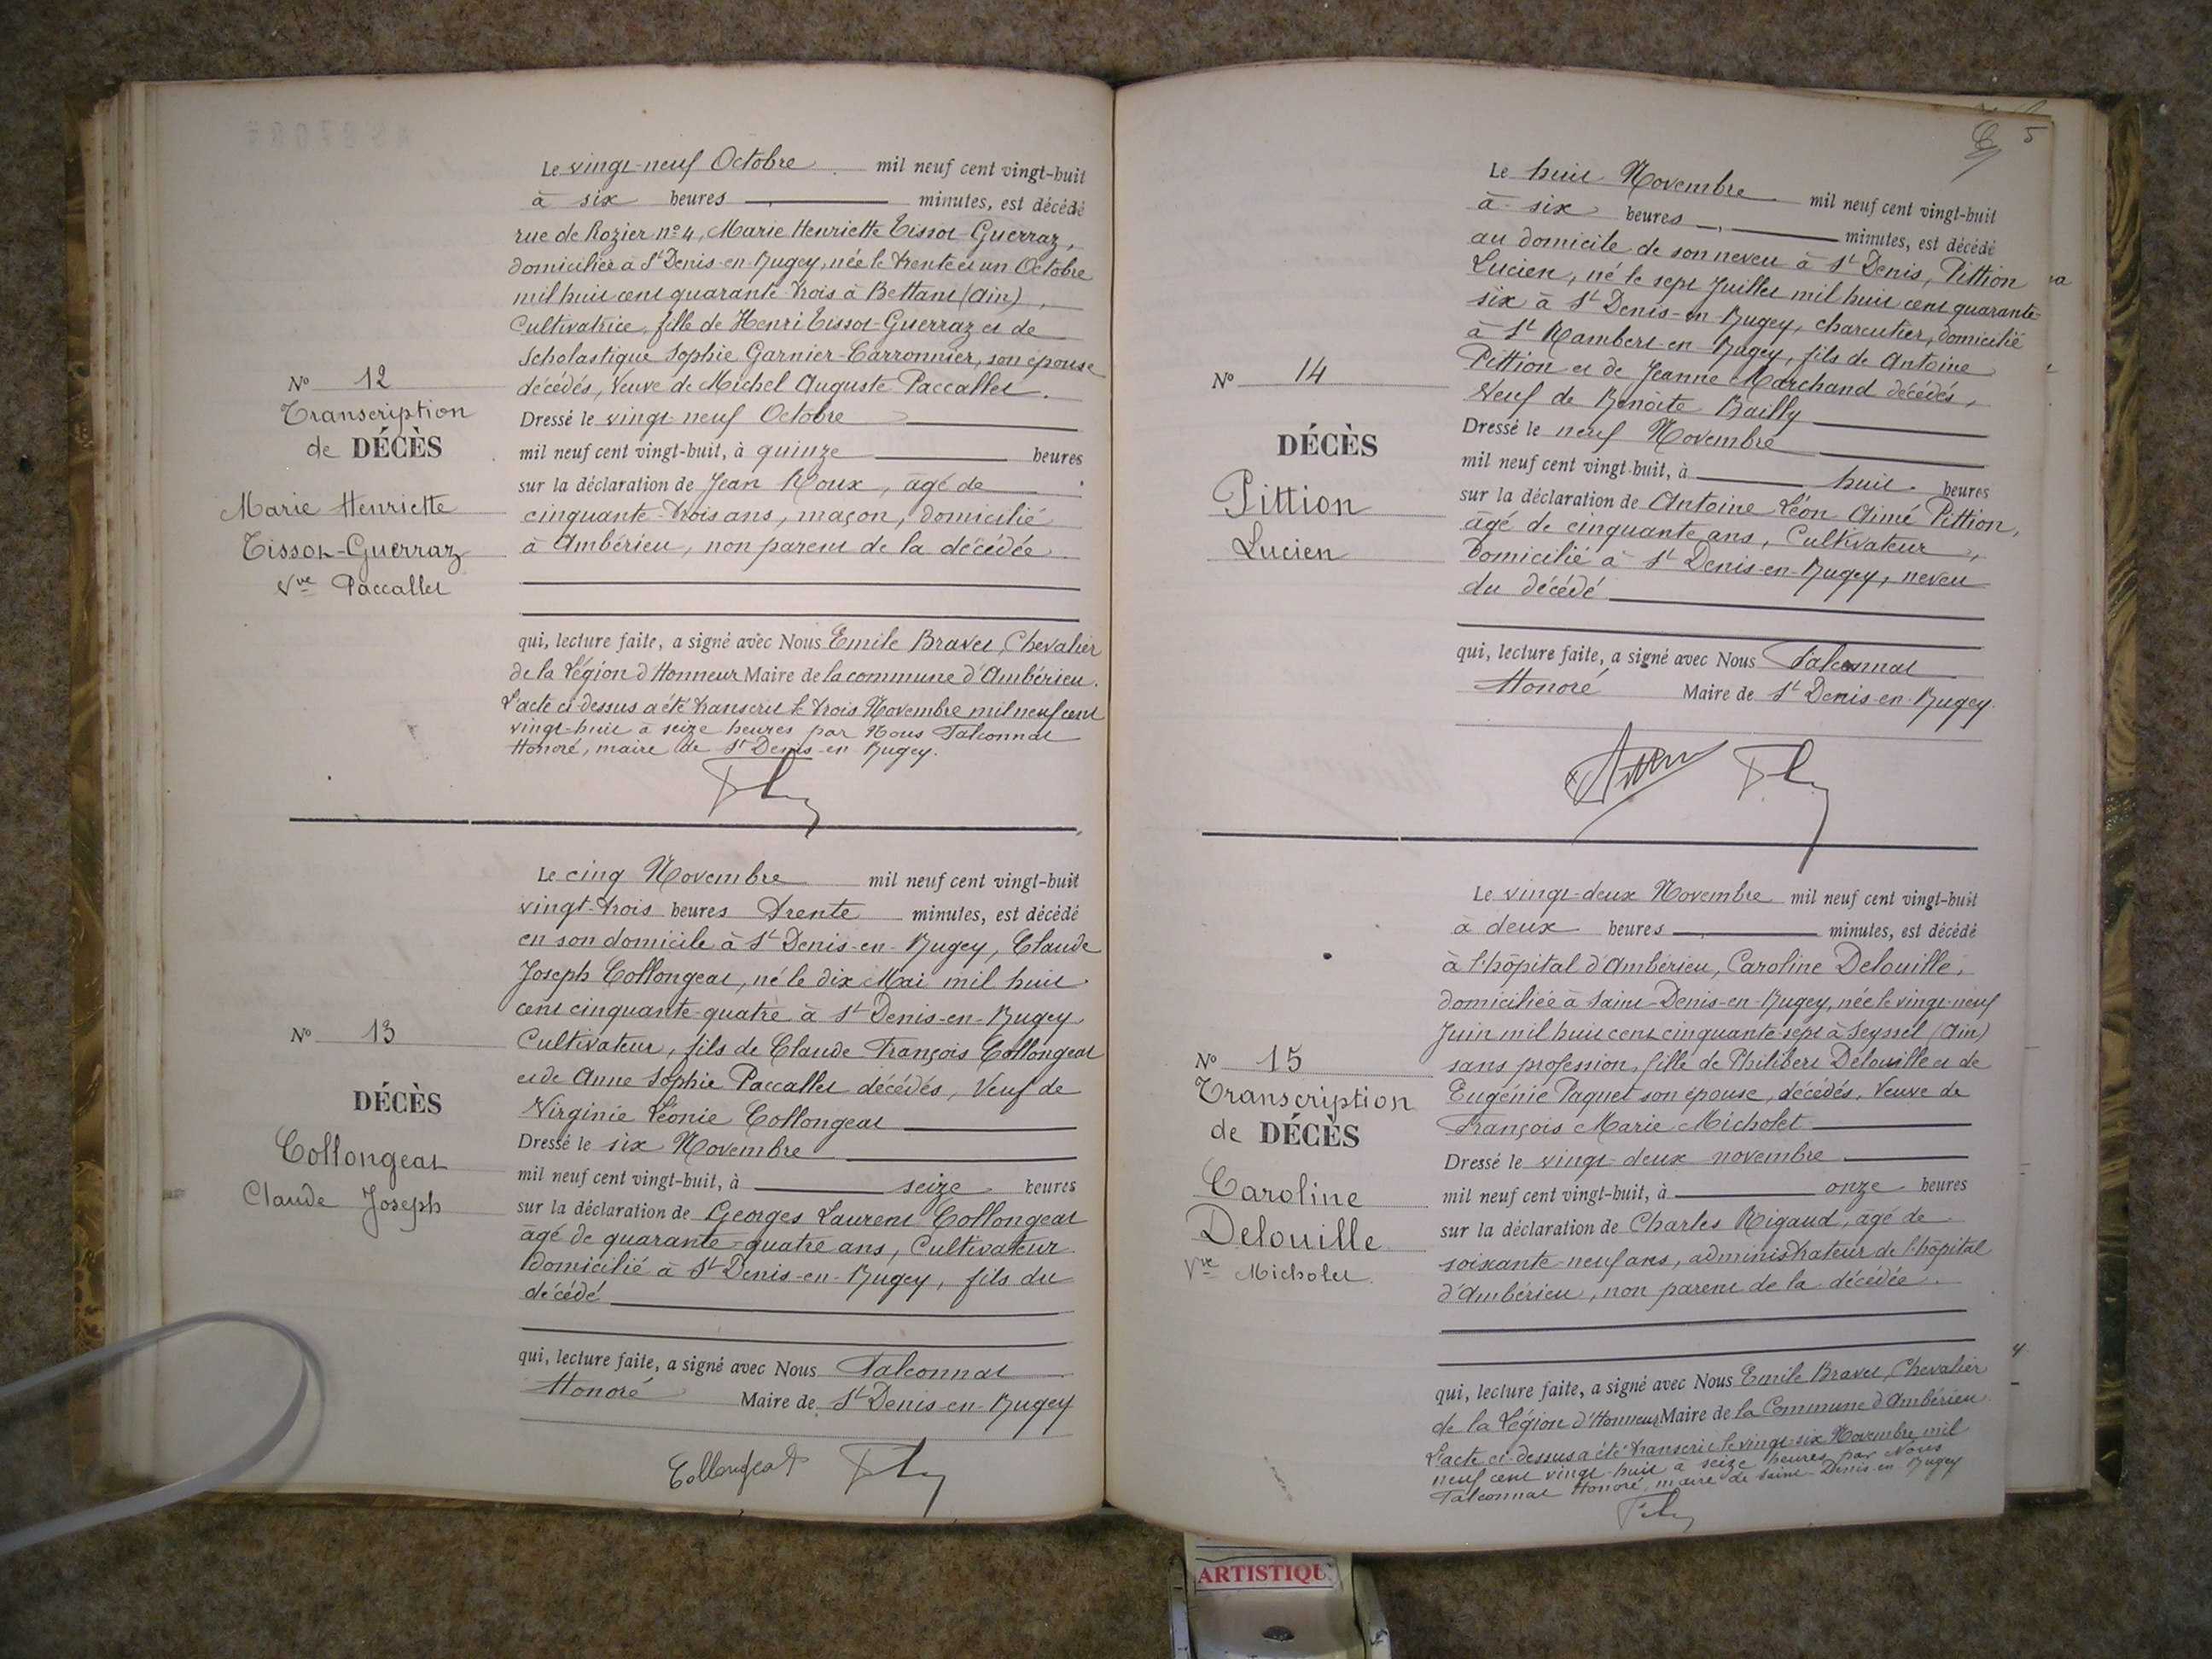 Le vingt-neuf Octobre mil neuf cent vingt-huit
à six heures minutes, est décédé
rue de Rozier nº 4, Marie Henriette Tissot-Guerraz,
domiciliée à St Denis-en-Bugey, née le trente et un Octobre
mil huit cent quarante trois à Bettant (Ain),
Cultivatrice, fille de Henri Tissot-Guerraz et de
Scholastique Sophie Garnier-Carronnier, son épouse
décédés, Veuve de Michel Auguste Paccallet.
Dressé le vingt-neuf Octobre
mil neuf cent vingt-huit, à quinze heures
sur la déclaration de Jean Roux, âgé de
cinquante-trois ans, maçon, domicilié
à Ambérieu, non parent de la décédée
qui, lecture faite, a signé avec Nous Emile Bravet, Chevalier
de la Légion d'Honneur Maire de la commune d'Ambérieu.
L'acte ci-dessus a été transcrit le trois Novembre mil neuf cent
vingt-huit à seize heures par Nous Falconnat
Honoré, maire de St Denis-en Bugey.
Nº 12
Transcription
de DÉCÈS
Marie Henriette
Tissot-Guerraz
Vve Paccallet
Le cinq Novembre mil neuf cent vingt-huit
vingt-trois heures trente minutes, est décédé
en son domicile à St Denis-en-Bugey, Claude
Joseph Collongeat, né le dix Mai mil huit
cent cinquante-quatre à St Denis-en-Bugey
Cultivateur, fils de Claude François Collongeat
et de Anne Sophie Paccallet décédés, Veuf de
Virginie Léonie Collongeat
Dressé le six Novembre
mil neuf cent vingt-huit, à seize heures
sur la déclaration de Georges Laurent Collongeat
âgé de quarante-quatre ans, Cultivateur
domicilié à St Denis-en-Bugey, fils du
décédé
qui, lecture faite, a signé avec Nous Falconnat
Honoré Maire de St Denis-en-Bugey
Collongeat
Nº 13
DÉCÈS
Collongeat
Claude Joseph
5
Le huit Novembre mil neuf cent vingt-huit
à six heures minutes, est décédé
au domicile de son neveu à St Denis, Pittion
Lucien, né le sept Juillet mil huit cent quarante-
six à St Denis-en-Bugey, charcutier, domicilié
à St Rambert-en-Bugey, fils de Antoine
Pittion et de Jeanne Marchand décédés,
Veuf de Benoîte Bailly
Dressé le neuf Novembre
mil neuf cent vingt-huit, à huit heures
sur la déclaration de Antoine Léon Aimé Pittion,
âgé de cinquante ans, Cultivateur,
domicilié à St Denis-en-Bugey, neveu
du décédé
qui, lecture faite, a signé avec Nous Falconnat
Honoré Maire de St Denis-en-Bugey.
Nº 14
DÉCÈS
Pittion
Lucien
Le vingt-deux Novembre mil neuf cent vingt-huit
à deux heures minutes, est décédé
à l'hôpital d'Ambérieu, Caroline Delouille,
domiciliée à Saint-Denis-en-Bugey, née le vingt-neuf
Juin mil huit cent cinquante-sept à Seyssel (Ain)
sans profession, fille de Philibert Delouille et de
Eugénie Paquet son épouse, décédés, Veuve de
François Marie Micholet
Dressé le vingt-deux novembre
mil neuf cent vingt-huit, à onze heures
sur la déclaration de Charles Rigaud, âgé de
soixante-neuf ans, administrateur de l'hôpital
d'Ambérieu, non parent de la décédée.
qui, lecture faite, a signé avec Nous Emile Bravet, Chevalier
de la Légion d'Honneur Maire de la Commune d'Ambérieu
L'acte ci-dessus a été transcrit le vingt-six Novembre mil
neuf cent vingt-huit à seize heures par Nous
Falconnat Honoré, maire de Saint-Denis-en-Bugey
Nº 15
Transcription
de DÉCÈS
Caroline
Delouille
Vve Micholet
ARTISTIQU